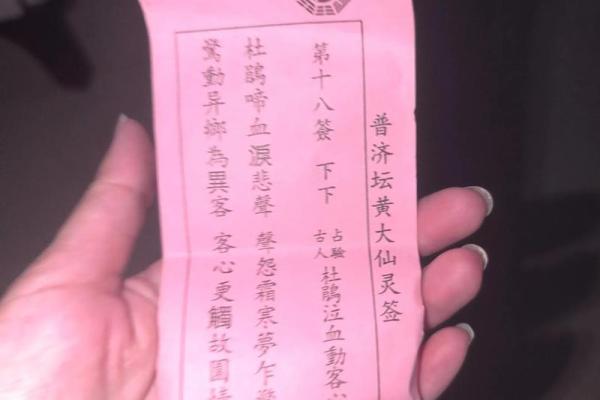 普济坛黄大仙灵签
第十八簽 下下
占驗
古人
杜鵑泣血動客心
杜鵑啼血淚悲聲 聲怨霜寒夢乍驚
驚動异鄉為異客 客心更觸故園情